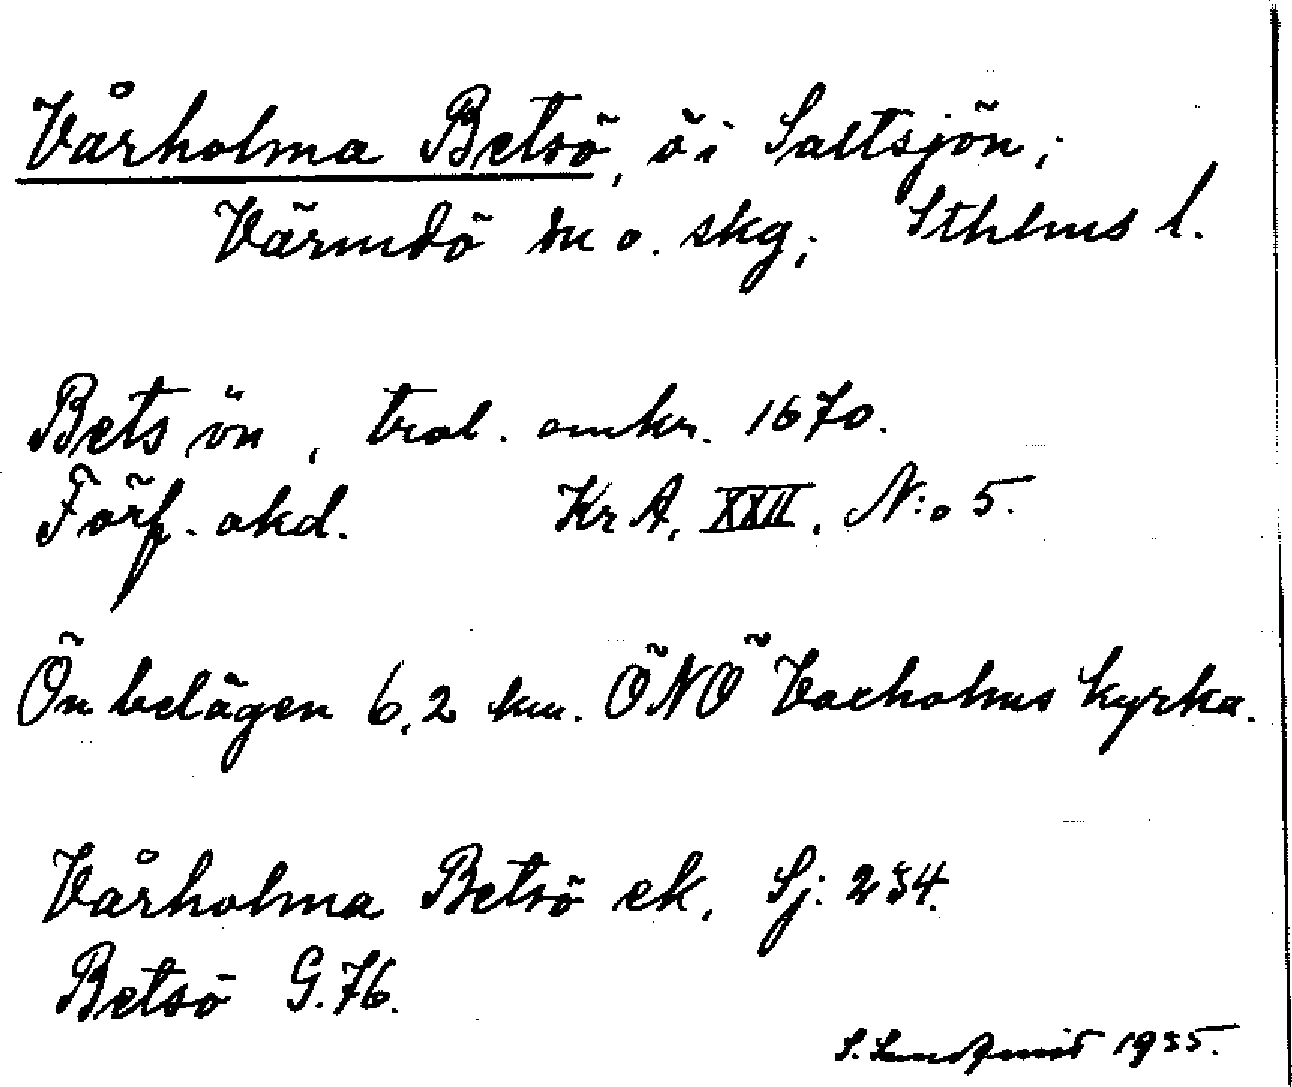 Vårholma Betsö, ö i Saltsjön;
Värmdö sn o. skg; Sthlms l.
Betsön, trol. omkr. 1670.
Förf. okd. Kr A, XXII. N:o 5.
Ön belägen 6,2 km. ÖNÖ Vaxholms kyrka.
Vårholma Betsö ek. Sj: 234.
Betsö G. 76.
S. 1935.